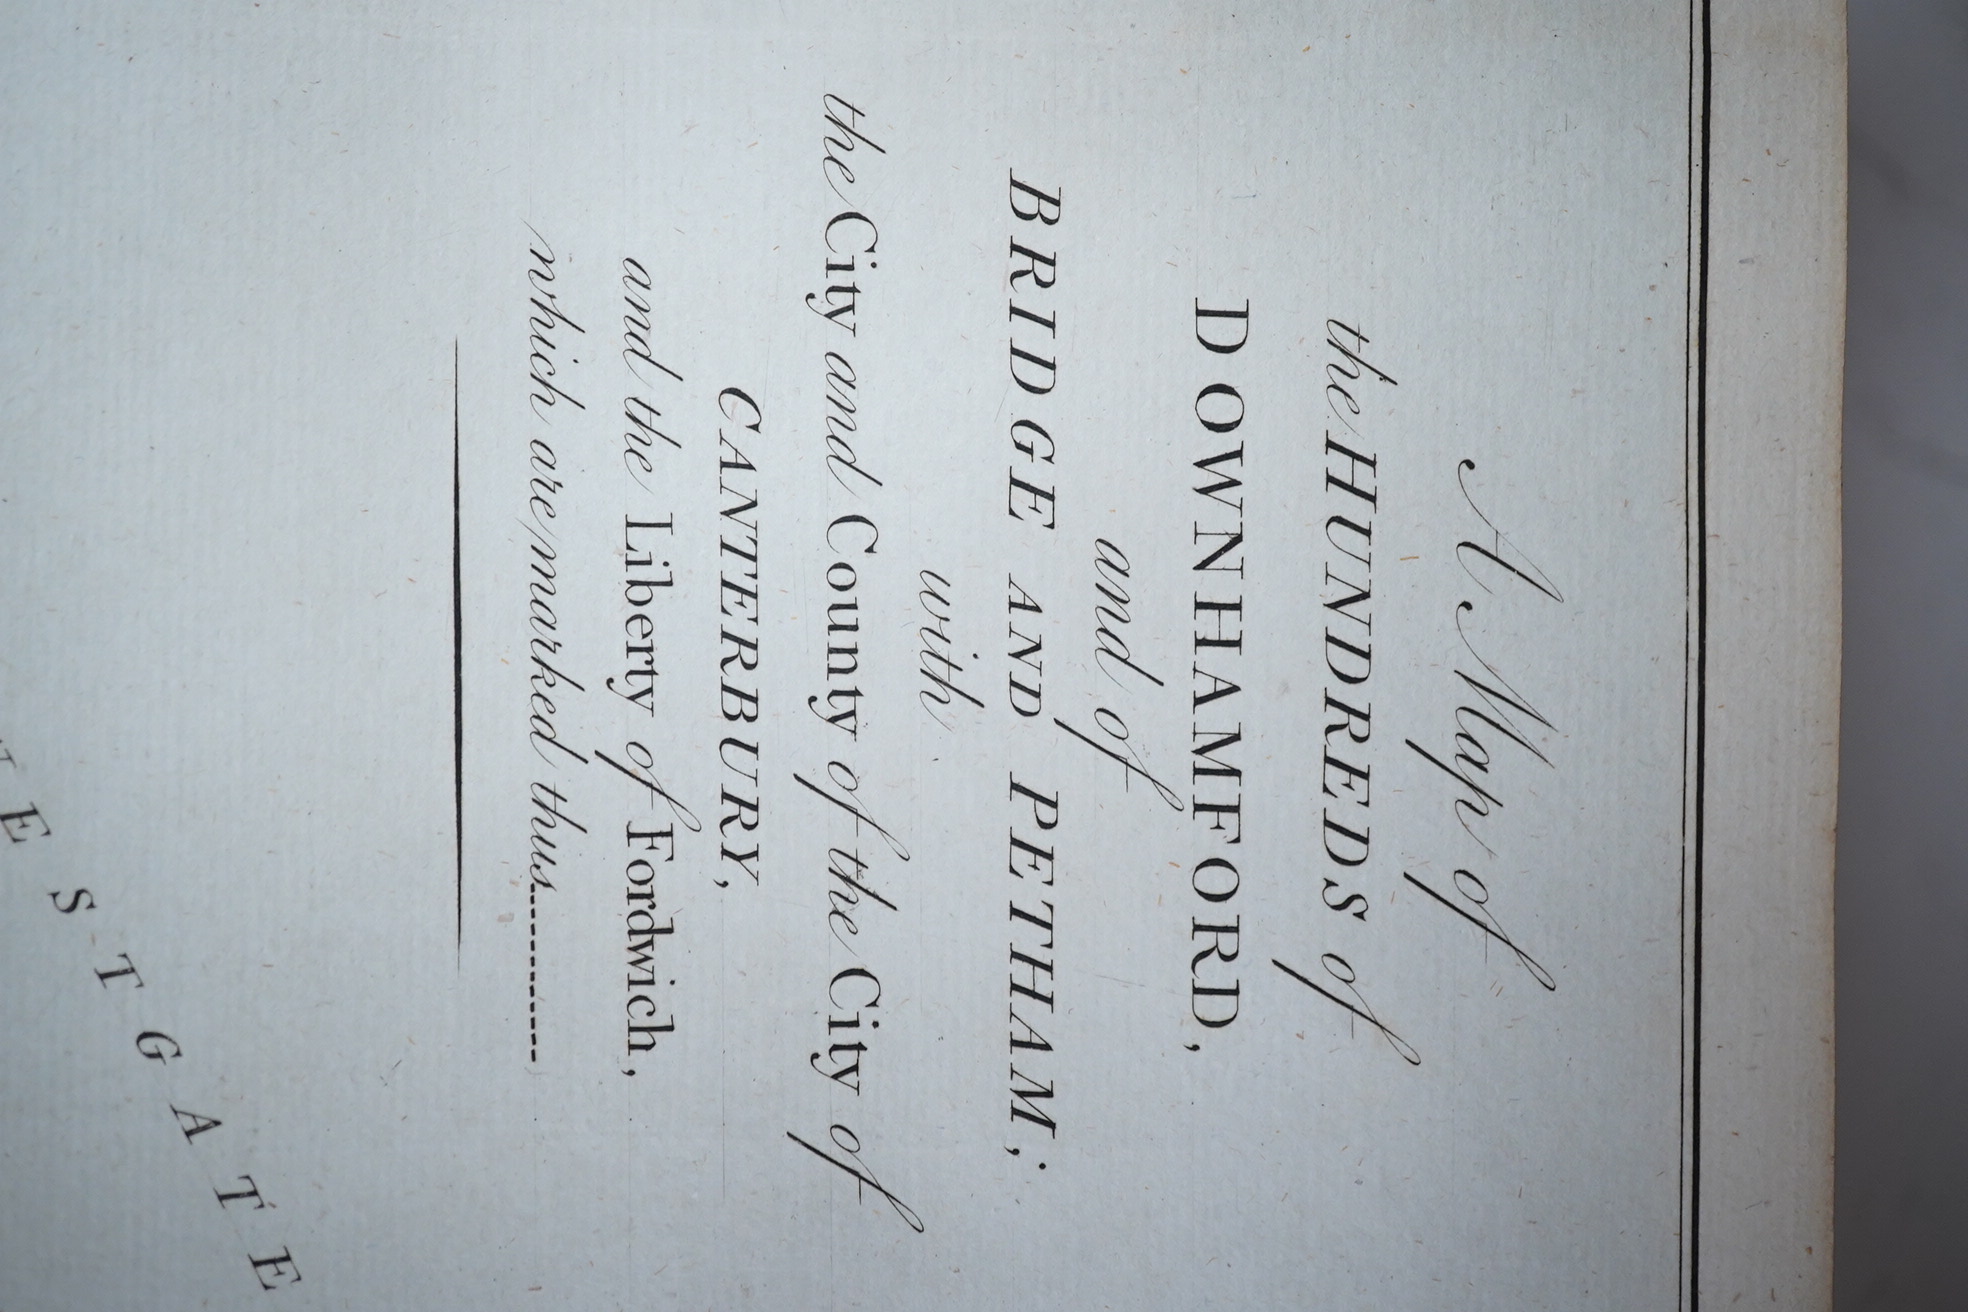 A Map of
the HUNDREDS of
DOWNHAMFORD,
and of
BRIDGE AND PETHAM;
with
the City and County of the City of
CANTERBURY,
and the Liberty of Fordwich,
which are marked thus...........
WESTGATE